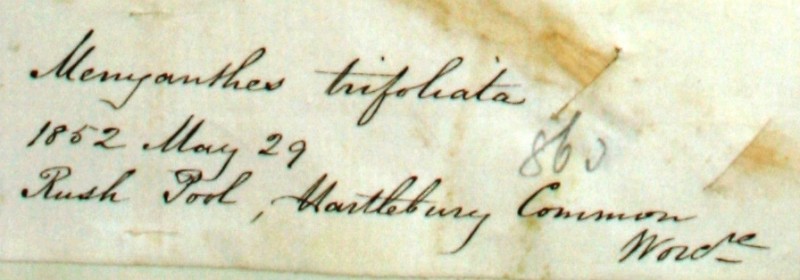 Menyanthes trifoliata
1852 May 29
860
Rush Pool, Hartlebury Common
Worc^re